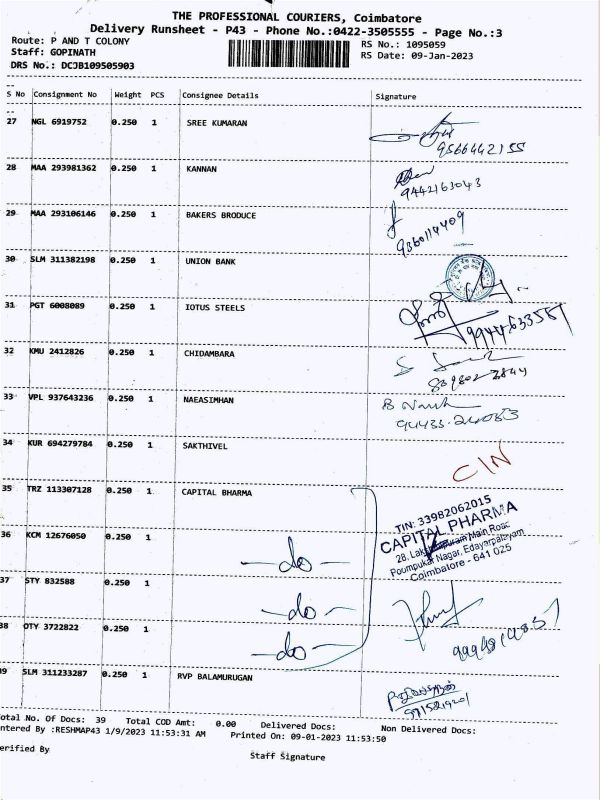 THE PROFESSIONAL COURIERS, Coimbatore
Delivery Runsheet - P43 - Phone No.:0422-3505555 - Page No.:3
Route: P AND T COLONY
RS No.: 1095059
Staff: GOPINATH
RS Date: 09-Jan-2023
DRS No.: DCJB109505903
S No Consignment No Weight PCS Consignee Details Signature
27 NGL 6919752 0.250 1 SREE KUMARAN
9566442155
28 MAA 293981362 0.250 1 KANNAN
9442163043
29 MAA 293106146 0.250 1 BAKERS BRODUCE
30 SLM 311382198 0.250 1 UNION BANK
31 PGT 6008089 0.250 1 IOTUS STEELS
32 KMU 2412826 0.250 1 CHIDAMBARA
33 VPL 937643236 0.250 1 NAEASIMHAN
34 KUR 694279784 0.250 1 SAKTHIVEL
35 TRZ 113307128 0.250 1 CAPITAL BHARMA
TIN: 33982062015
CAPITAL PHARMA
Main Road
Poompukar Nagar, Edayarpalayam
Coimbatore - 641 025
36 KCM 12676050 0.250 1 -do-
37 STY 832588 0.250 1 -do-
38 OTY 3722822 0.250 1 -do-
39 SLM 311233287 0.250 1 RVP BALAMURUGAN
Total No. Of Docs: 39 Total COD Amt: 0.00 Delivered Docs: Non Delivered Docs:
ntered By :RESHMAP43 1/9/2023 11:53:31 AM Printed On: 09-01-2023 11:53:50
erified By Staff Signature